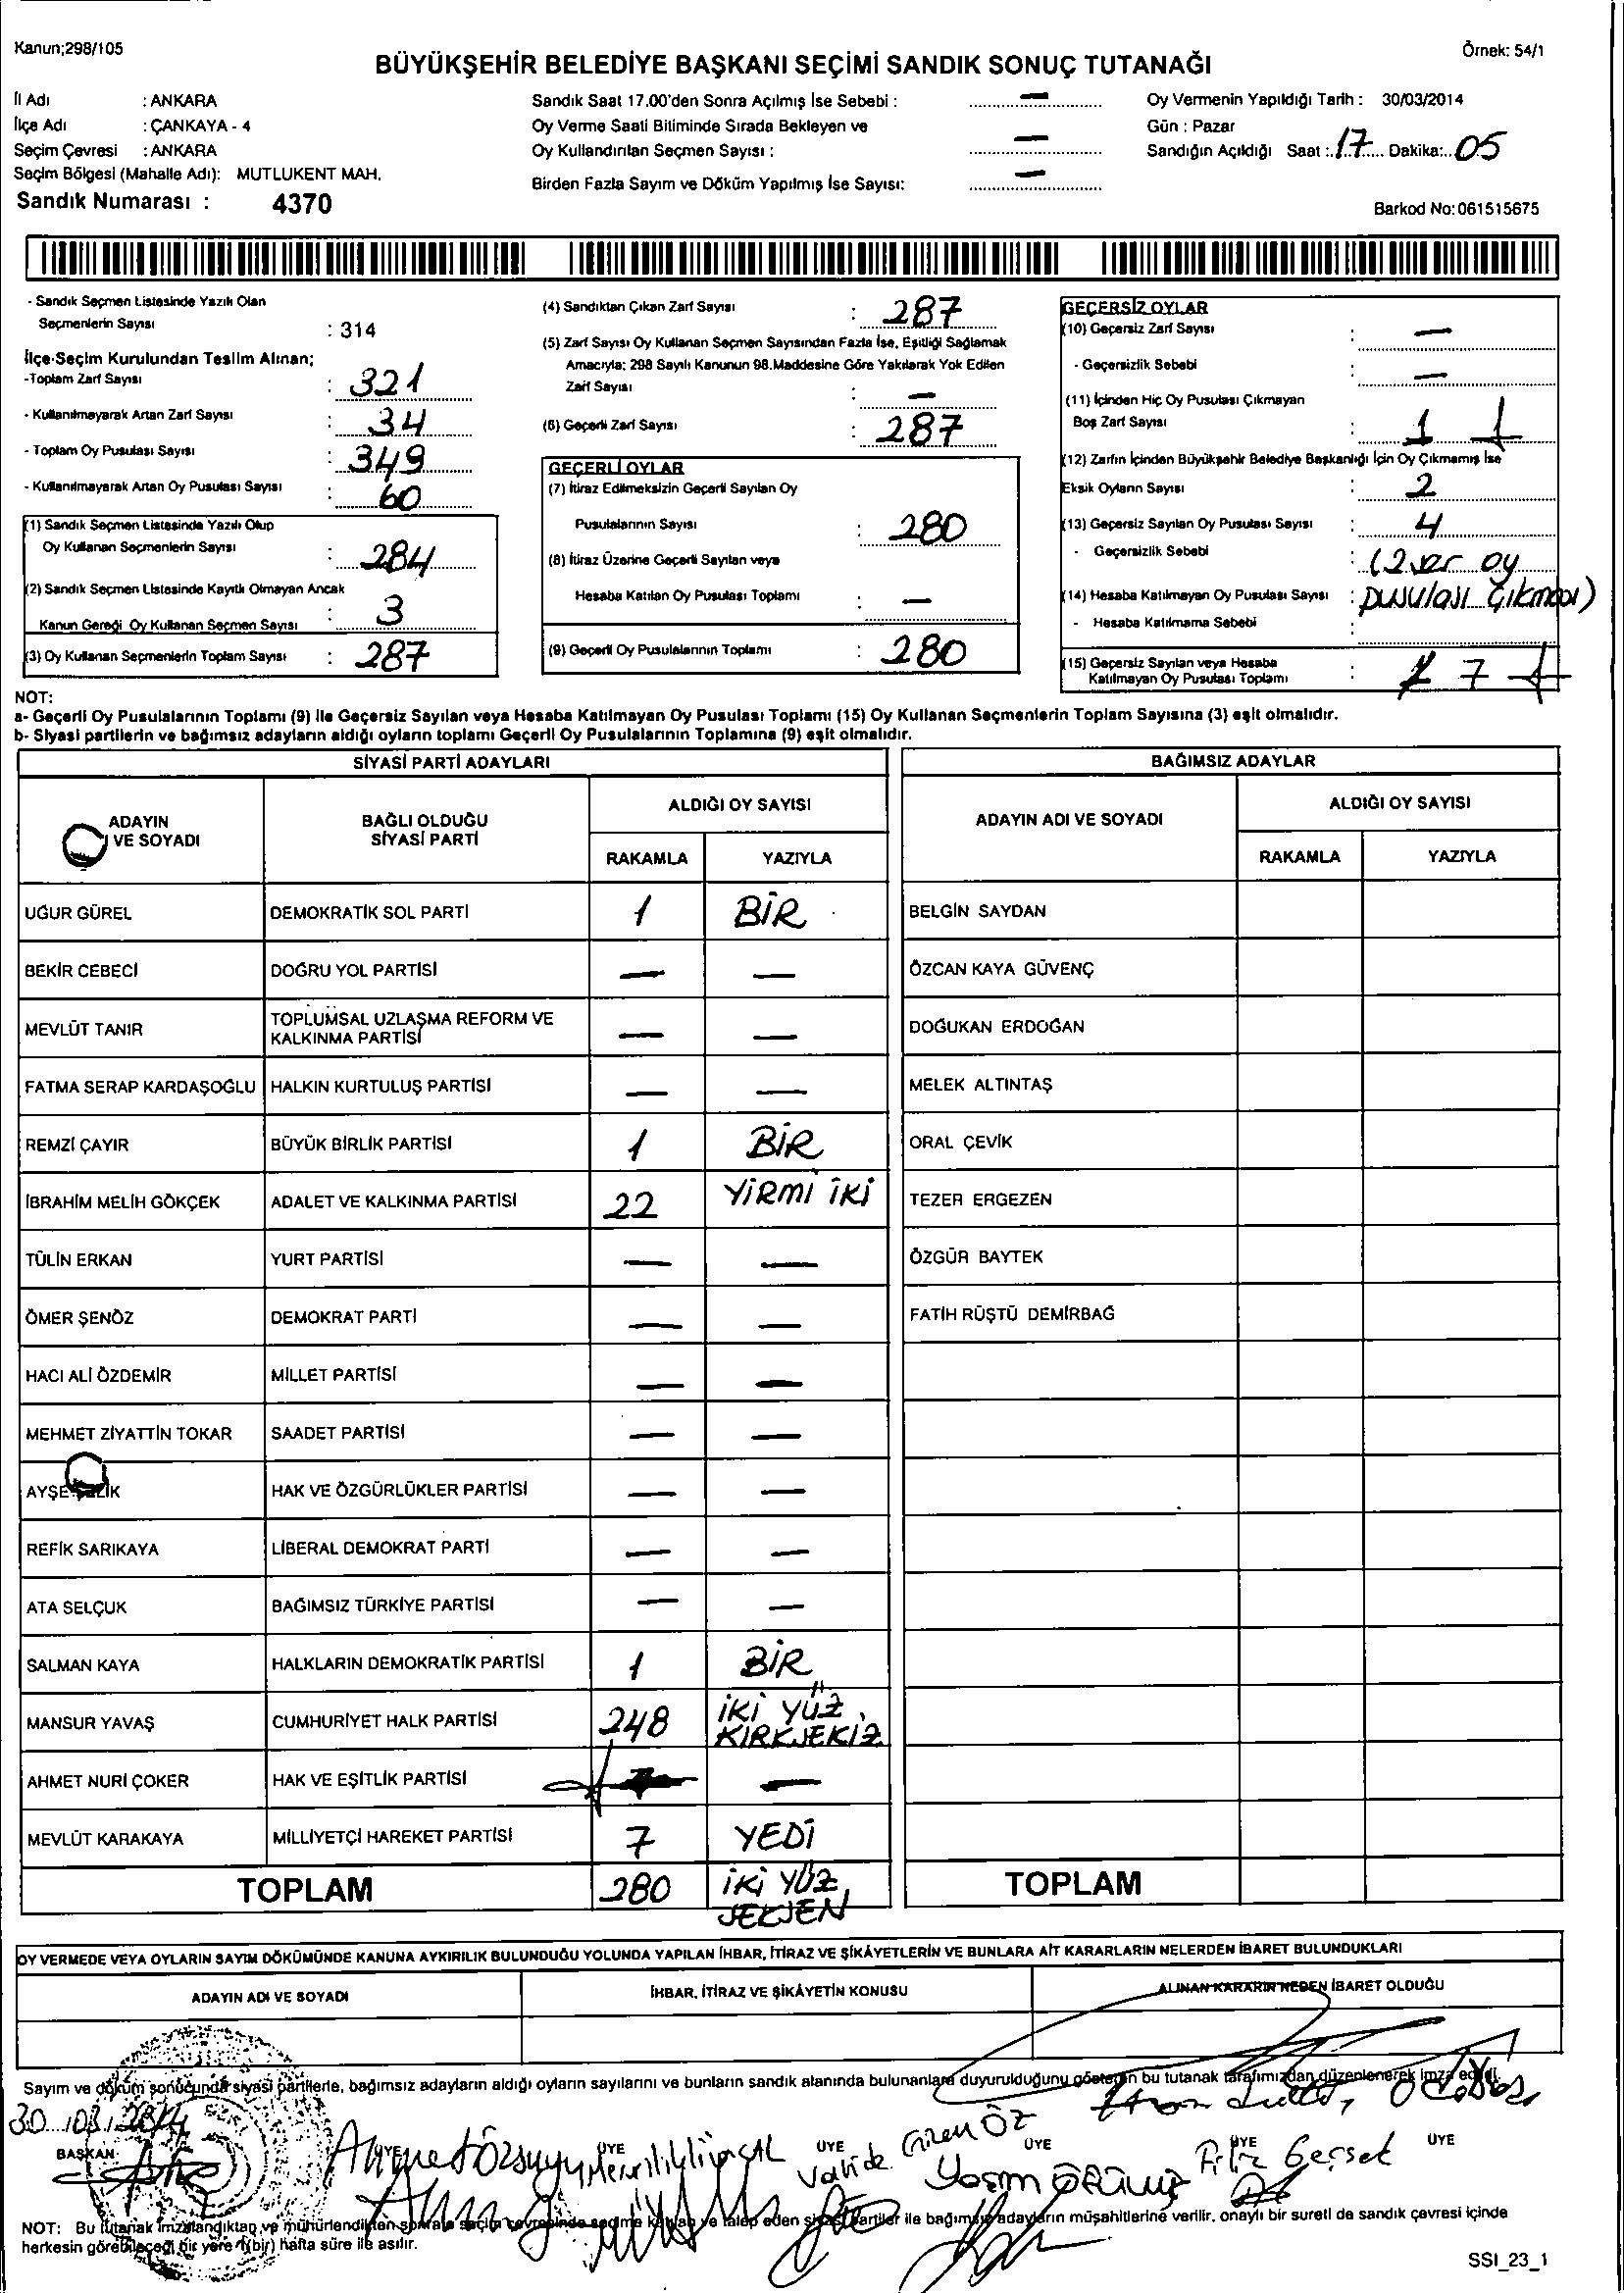 Kanun;298/105
Örnek: 54/1
BÜYÜKŞEHİR BELEDİYE BAŞKANI SEÇİMİ SANDIK SONUÇ TUTANAĞI
İl Adı : ANKARA
İlçe Adı : ÇANKAYA - 4
Seçim Çevresi : ANKARA
Seçim Bölgesi (Mahalle Adı): MUTLUKENT MAH.
Sandık Numarası : 4370
Sandık Saat 17.00'den Sonra Açılmış İse Sebebi : —
Oy Verme Saati Bitiminde Sırada Bekleyen ve
Oy Kullandırılan Seçmen Sayısı : —
Birden Fazla Sayım ve Döküm Yapılmış İse Sayısı: —
Oy Vermenin Yapıldığı Tarih : 30/03/2014
Gün : Pazar
Sandığın Açıldığı Saat : 17 Dakika: 05
Barkod No: 061515675
- Sandık Seçmen Listesinde Yazılı Olan
Seçmenlerin Sayısı : 314
İlçe Seçim Kurulundan Teslim Alınan;
-Toplam Zarf Sayısı : 321
- Kullanılmayarak Artan Zarf Sayısı : 34
- Toplam Oy Pusulası Sayısı : 349
- Kullanılmayarak Artan Oy Pusulası Sayısı : 60
(1) Sandık Seçmen Listesinde Yazılı Olup
Oy Kullanan Seçmenlerin Sayısı : 284
(2) Sandık Seçmen Listesinde Kayıtlı Olmayan Ancak
Kanun Gereği Oy Kullanan Seçmen Sayısı : 3
(3) Oy Kullanan Seçmenlerin Toplam Sayısı : 287
(4) Sandıktan Çıkan Zarf Sayısı : 287
(5) Zarf Sayısı Oy Kullanan Seçmen Sayısından Fazla İse, Eşitliği Sağlamak
Amacıyla; 298 Sayılı Kanunun 98.Maddesine Göre Yakılarak Yok Edilen
Zarf Sayısı : —
(6) Geçerli Zarf Sayısı : 287
GEÇERLİ OYLAR
(7) İtiraz Edilmeksizin Geçerli Sayılan Oy
Pusulalarının Sayısı : 280
(8) İtiraz Üzerine Geçerli Sayılan veya
Hesaba Katılan Oy Pusulası Toplamı : —
(9) Geçerli Oy Pusulalarının Toplamı : 280
GEÇERSİZ OYLAR
(10) Geçersiz Zarf Sayısı : —
- Geçersizlik Sebebi : —
(11) İçinden Hiç Oy Pusulası Çıkmayan
Boş Zarf Sayısı : 1
(12) Zarfın İçinden Büyükşehir Belediye Başkanlığı İçin Oy Çıkmamış İse
Eksik Oyların Sayısı : 2
(13) Geçersiz Sayılan Oy Pusulası Sayısı : 4
- Geçersizlik Sebebi : (2 oy
(14) Hesaba Katılmayan Oy Pusulası Sayısı : pusulası çıkmadı)
- Hesaba Katılmama Sebebi :
(15) Geçersiz Sayılan veya Hesaba
Katılmayan Oy Pusulası Toplamı : 7
NOT:
a- Geçerli Oy Pusulalarının Toplamı (9) ile Geçersiz Sayılan veya Hesaba Katılmayan Oy Pusulası Toplamı (15) Oy Kullanan Seçmenlerin Toplam Sayısına (3) eşit olmalıdır.
b- Siyasi partilerin ve bağımsız adayların aldığı oyların toplamı Geçerli Oy Pusulalarının Toplamına (9) eşit olmalıdır.
SİYASİ PARTİ ADAYLARI
ADAYIN
VE SOYADI
BAĞLI OLDUĞU
SİYASİ PARTİ
ALDIĞI OY SAYISI
RAKAMLA YAZIYLA
UĞUR GÜREL DEMOKRATİK SOL PARTİ 1 BİR
BEKİR CEBECİ DOĞRU YOL PARTİSİ — —
MEVLÜT TANIR TOPLUMSAL UZLAŞMA REFORM VE
KALKINMA PARTİSİ — —
FATMA SERAP KARDAŞOĞLU HALKIN KURTULUŞ PARTİSİ — —
REMZİ ÇAYIR BÜYÜK BİRLİK PARTİSİ 1 BİR
İBRAHİM MELİH GÖKÇEK ADALET VE KALKINMA PARTİSİ 22 YİRMİ İKİ
TÜLİN ERKAN YURT PARTİSİ — —
ÖMER ŞENÖZ DEMOKRAT PARTİ — —
HACI ALİ ÖZDEMİR MİLLET PARTİSİ — —
MEHMET ZİYATTİN TOKAR SAADET PARTİSİ — —
AYŞE HAK VE ÖZGÜRLÜKLER PARTİSİ — —
REFİK SARIKAYA LİBERAL DEMOKRAT PARTİ — —
ATA SELÇUK BAĞIMSIZ TÜRKİYE PARTİSİ — —
SALMAN KAYA HALKLARIN DEMOKRATİK PARTİSİ 1 BİR
MANSUR YAVAŞ CUMHURİYET HALK PARTİSİ 248 İKİ YÜZ
KIRKSEKİZ
AHMET NURİ ÇOKER HAK VE EŞİTLİK PARTİSİ —
MEVLÜT KARAKAYA MİLLİYETÇİ HAREKET PARTİSİ 7 YEDİ
TOPLAM 280 İKİ YÜZ
SEKSEN
BAĞIMSIZ ADAYLAR
ADAYIN ADI VE SOYADI
ALDIĞI OY SAYISI
RAKAMLA YAZIYLA
BELGİN SAYDAN
ÖZCAN KAYA GÜVENÇ
DOĞUKAN ERDOĞAN
MELEK ALTINTAŞ
ORAL ÇEVİK
TEZER ERGEZEN
ÖZGÜR BAYTEK
FATİH RÜŞTÜ DEMİRBAĞ
TOPLAM
OY VERMEDE VEYA OYLARIN SAYIM DÖKÜMÜNDE KANUNA AYKIRILIK BULUNDUĞU YOLUNDA YAPILAN İHBAR, İTİRAZ VE ŞİKÂYETLERİN VE BUNLARA AİT KARARLARIN NELERDEN İBARET BULUNDUKLARI
ADAYIN ADI VE SOYADI
İHBAR, İTİRAZ VE ŞİKÂYETİN KONUSU
ALINAN KARARIN NEDEN İBARET OLDUĞU
Sayım ve döküm sonucunda siyasi partilerle, bağımsız adayların aldığı oyların sayılarını ve bunların sandık alanında bulunanlara duyurulduğunu gösteren bu tutanak tarafımızdan düzenlenerek imza edildi.
30.03.2014
BAŞKAN ÜYE ÜYE ÜYE ÜYE ÜYE ÜYE
Ahmet Özsuyu
Vahide Gizem ÖZ
Filiz Gerşek
NOT: Bu tutanak imzalandıktan ve mühürlendikten sonra seçim çevresinde seçime katılan ve talep eden siyasi partiler ile bağımsız adayların müşahitlerine verilir, onaylı bir sureti de sandık çevresi içinde
herkesin görebileceği bir yere 1(bir) hafta süre ile asılır.
SSI_23_1